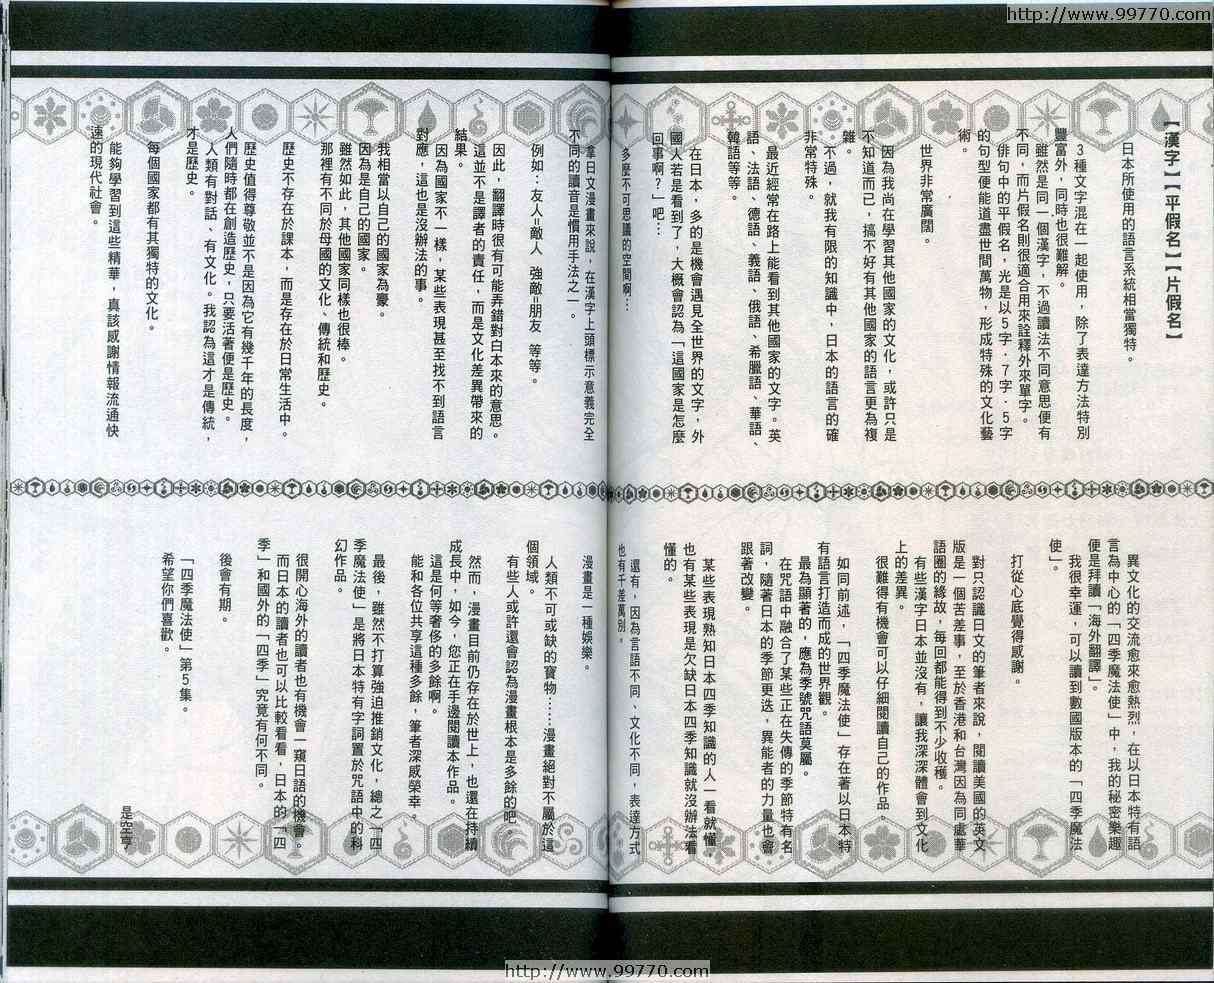 http://www.99770.com
【漢字】【平假名】【片假名】
日本所使用的語言系統相當獨特。
3種文字混在一起使用，除了表達方法特別
豐富外，同時也很難解。
雖然是同一個漢字，不過讀法不同意思便有
不同，而片假名則很適合用來詮釋外來單字。
俳句中的平假名，光是以5字．7字．5字
的句型便能道盡世間萬物，形成特殊的文化藝
術。
世界非常廣闊。
因為我尚在學習其他國家的文化，或許只是
不知道而已，搞不好有其他國家的語言更為複
雜。
不過，就我有限的知識中，日本的語言的確
非常特殊。
最近經常在路上能看到其他國家的文字。英
語、法語、德語、義語、俄語、希臘語、華語、
韓語等等。
在日本，多的是機會遇見全世界的文字，外
國人若是看到了，大概會認為「這國家是怎麼
回事啊？」吧…
多麼不可思議的空間啊…
拿日文漫畫來說，在漢字上頭標示意義完全
不同的讀音是慣用手法之一。
例如：友人=敵人　強敵=朋友　等等。
因此，翻譯時很有可能弄錯對白本來的意思。
這並不是譯者的責任，而是文化差異帶來的
結果。
因為國家不一樣，某些表現甚至找不到語言
對應，這也是沒辦法的事。
我相當以自己的國家為豪。
因為是自己的國家。
雖然如此，其他國家同樣也很棒。
那裡有不同於母國的文化、傳統和歷史。
歷史不存在於課本，而是存在於日常生活中。
歷史值得尊敬並不是因為它有幾千年的長度，
人們隨時都在創造歷史，只要活著便是歷史。
人類有對話、有文化。我認為這才是傳統，
才是歷史。
每個國家都有其獨特的文化。
能夠學習到這些精華，真該感謝情報流通快
速的現代社會。
異文化的交流愈來愈熱烈，在以日本特有語
言為中心的「四季魔法使」中，我的秘密樂趣
便是拜讀「海外翻譯」。
我很幸運，可以讀到數國版本的「四季魔法
使」。
打從心底覺得感謝。
對只認識日文的筆者來說，閱讀美國的英文
版是一個苦差事，至於香港和台灣因為同處華
語圈的緣故，每回都能得到不少收穫。
有些漢字日本並沒有，讓我深深體會到文化
上的差異。
很難得有機會可以仔細閱讀自己的作品。
如同前述，「四季魔法使」存在著以日本特
有語言打造而成的世界觀。
最為顯著的，應為季號咒語莫屬。
在咒語中融合了某些正在失傳的季節特有名
詞，隨著日本的季節更迭，異能者的力量也會
跟著改變。
某些表現熟知日本四季知識的人一看就懂，
也有某些表現是欠缺日本四季知識就沒辦法看
懂的。
還有，因為言語不同、文化不同，表達方式
也有千差萬別。
漫畫是一種娛樂。
人類不可或缺的寶物……漫畫絕對不屬於這
個領域。
有些人或許還會認為漫畫根本是多餘的吧。
然而，漫畫目前仍存在於世上，也還在持續
成長中，如今，您正在手邊閱讀本作品。
這是何等奢侈的多餘啊。
能和各位共享這種多餘，筆者深感榮幸。
最後，雖然不打算強迫推銷文化，總之「四
季魔法使」是將日本特有字詞置於咒語中的科
幻作品。
很開心海外的讀者也有機會一窺日語的機會。
而日本的讀者也可以比較看看，日本的「四
季」和國外的「四季」究竟有何不同。
後會有期。
「四季魔法使」第5集。
希望你們喜歡。
是空亨
http://www.99770.com